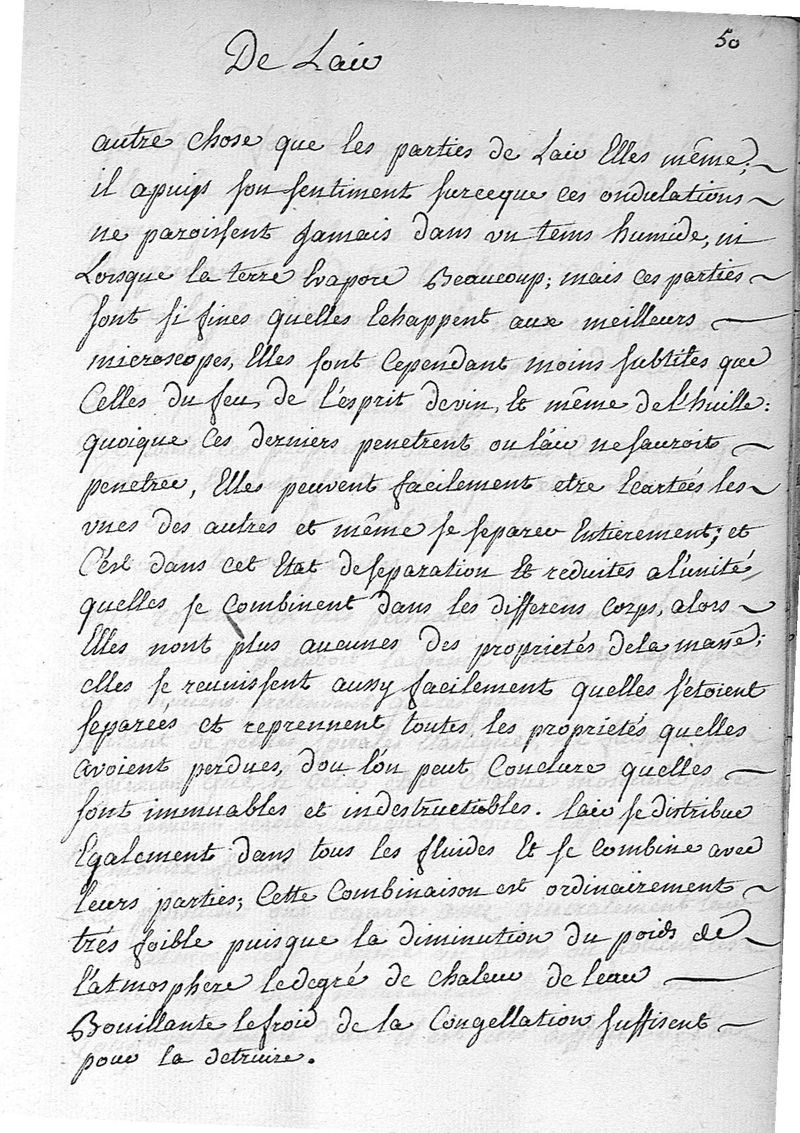 50
De Lair
autre chose que les parties de Lair Elles même,
il apuis son sentiment surceque ces ondulations
ne paroissent Jamais dans un tems humide, ni
Lorsque la terre Evapore Beaucoup; mais ces parties
sont si fines quelles Echappent aux meilleurs
microscopes, Elles sont Cependant moins subtiles que
Celles du feu, de l'esprit devin, Et même de l'huille:
quoique Ces derniers penetrent ou l'air ne sauroit
penetrer, Elles peuvent facilement etre Ecarteés les
unes des autres et même se separer Entierement; et
C'est dans cet Etat deseparation Et reduites al'unité,
quelles se Combinent dans les differens Corps, alors
Elles nont plus aucunes des proprietés dela masse;
elles se reunissent aussy facilement quelles s'etoient
separées et reprennent toutes les propriétés quelles
avoient perdues, dou l'on peut Conclure quelles
sont immuables et indestructibles. l'air se distribue
Egalement dans tous les fluides Et se combine avec
leurs parties; Cette Combinaison est ordinairement
trés foible puisque la diminution du poids de
l'atmosphere ledegré de chaleur de leau
Bouillante le froid de la Congellation suffisent
pour la detruire.